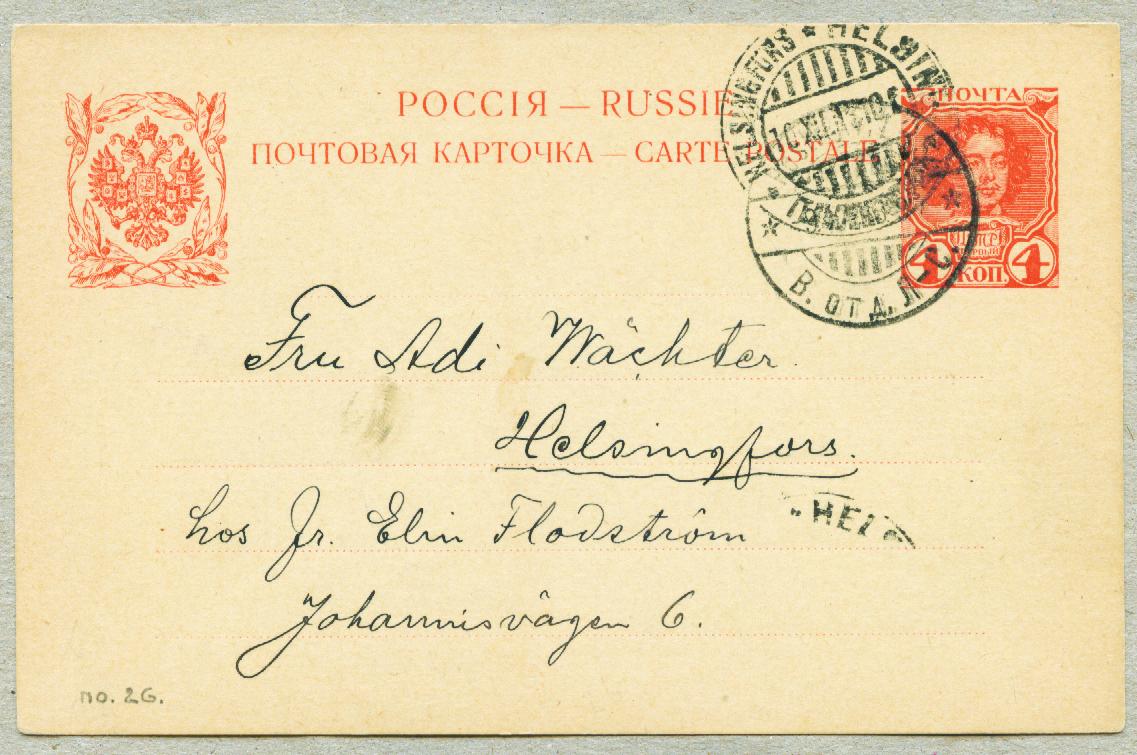 РОССІЯ — RUSSIE
ПОЧТОВАЯ КАРТОЧКА — CARTE POSTALE
ПОЧТА
4 КОП. 4
HELSINGFORS * HELSIN
В. ОТД.
Fru Adi Wächter.
Helsingfors.
HELS
hos Fr. Elin Flodström
Johannisvägen 6.
no. 26.